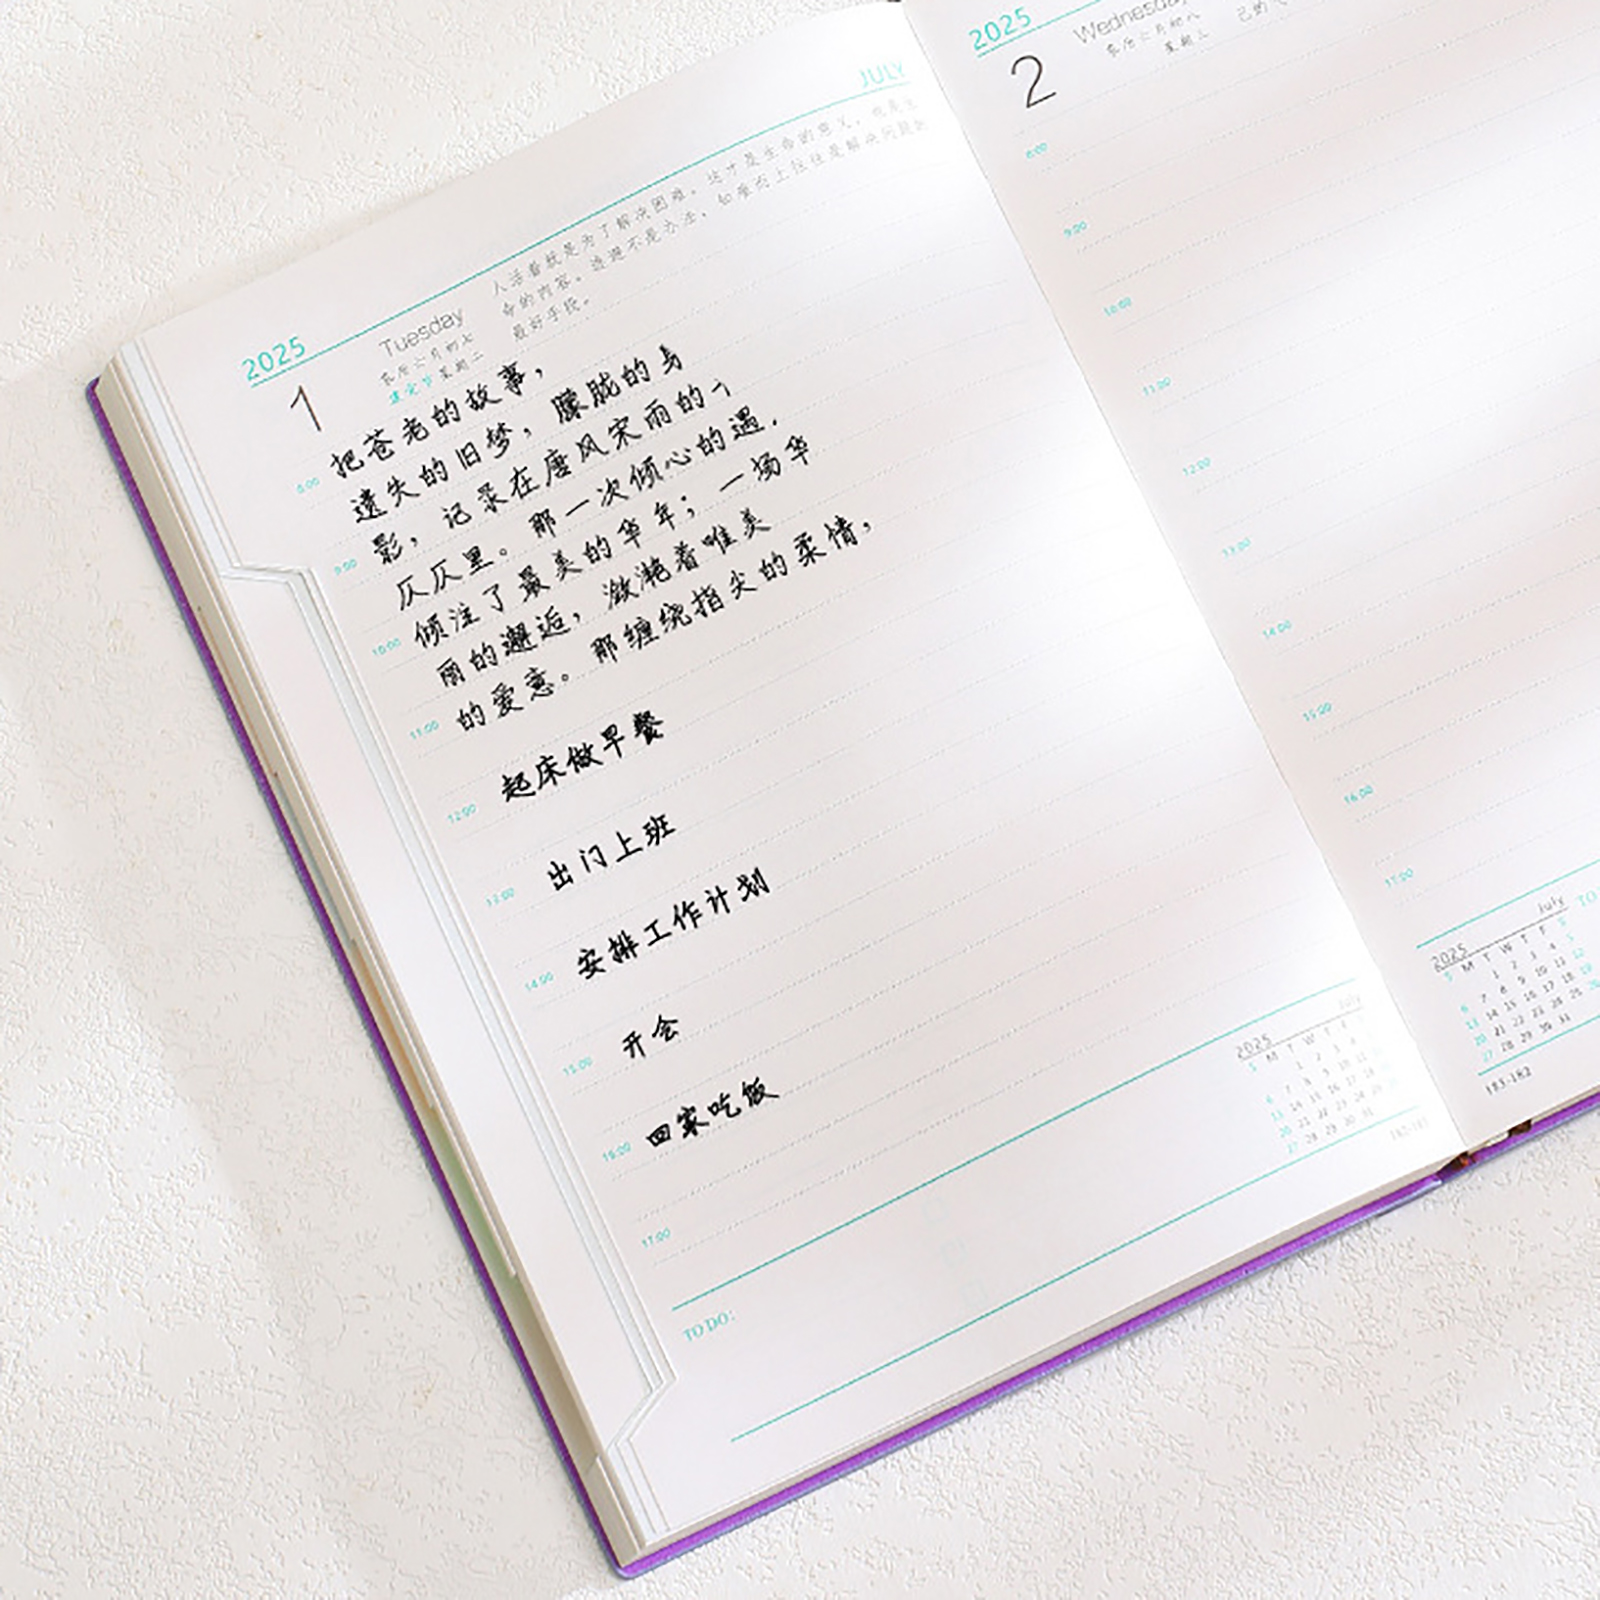 2025
JULY
1
Tuesday
农历六月初七
建党节 星期二
人活着就是为了解决困难。这才是生命的意义，也是生
命的内容。逃避不是办法，知难而上往往是解决问题的
最好手段。
把苍老的故事，
遗失的旧梦，朦胧的身
影，记录在唐风宋雨的
仄仄里。那一次倾心的遇
倾注了最美的华年；一场华
丽的邂逅，潋滟着唯美
的爱意。那缠绕指尖的柔情，
起床做早餐
出门上班
安排工作计划
开会
回家吃饭
8:00
9:00
10:00
11:00
12:00
13:00
14:00
15:00
16:00
17:00
TO DO:
2025 July
S M T W T F S
1 2 3 4
6 7 8 9 10 11
13 14 15 16 17 18
20 21 22 23 24 25
27 28 29 30 31
182-183
2025
2
Wednesday
农历六月初八
星期三
己的
8:00
9:00
10:00
11:00
12:00
13:00
14:00
15:00
16:00
17:00
TO
2025 July
S M T W T F S
1 2 3 4 5
6 7 8 9 10 11 12
13 14 15 16 17 18 19
20 21 22 23 24 25 26
27 28 29 30 31
183-182